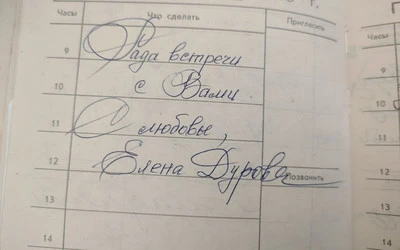 г.
Часы Что сделать Пригласить
9 Рада встречи
10 с Вами.
11 С любовью,
12 Елена Дурова Позвонить
13
14